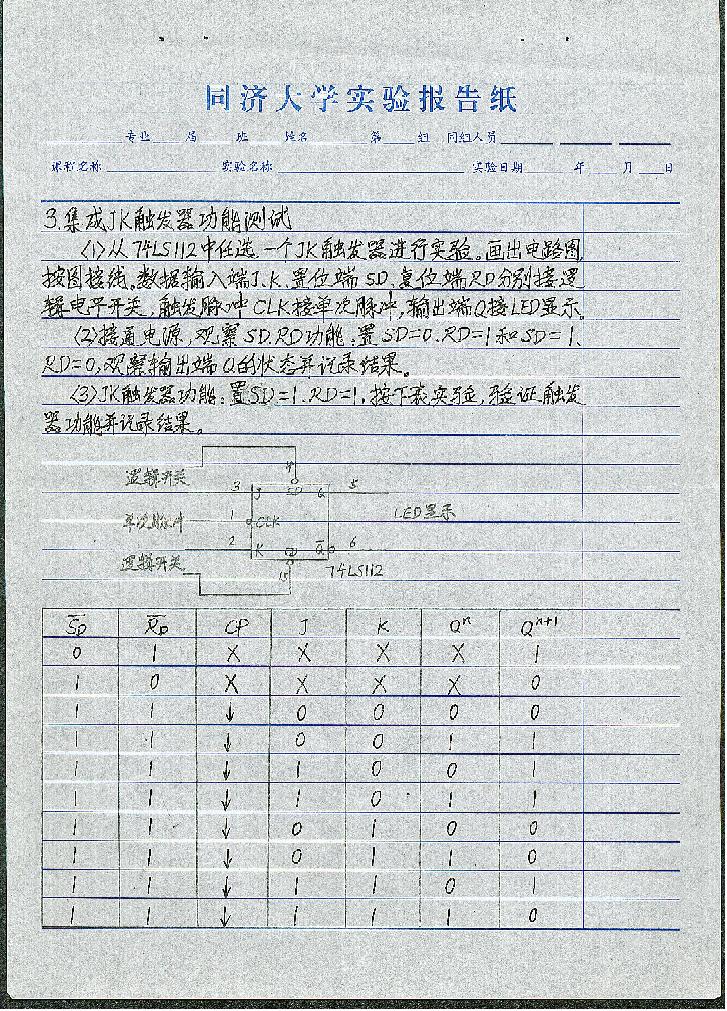 同济大学实验报告纸
专业 届 班 姓名 第 组 同组人员
课程名称 实验名称 实验日期 年 月 日
3.集成JK触发器功能测试
(1)从74LS112中任选一个JK触发器进行实验。画出电路图,
按图接线。数据输入端J.K.置位端SD,复位端RD分别接逻
辑电平开关,触发脉冲CLK接单次脉冲,输出端Q接LED显示。
(2)接通电源,观察SD.RD功能:置SD=0.RD=1和SD=1.
RD=0,观察输出端Q的状态并记录结果。
(3)JK触发器功能:置SD=1.RD=1,按下表实验,验证触发
器功能并记录结果。
逻辑开关 4
3 J SD Q 5
单次脉冲 1 CLK LED显示
2 K RD Q̅ 6
逻辑开关 15 74LS112
S̅D R̅D CP J K Qⁿ Qⁿ⁺¹
0 1 X X X X 1
1 0 X X X X 0
1 1 ↓ 0 0 0 0
1 1 ↓ 0 0 1 1
1 1 ↓ 1 0 0 1
1 1 ↓ 1 0 1 1
1 1 ↓ 0 1 0 0
1 1 ↓ 0 1 1 0
1 1 ↓ 1 1 0 1
1 1 ↓ 1 1 1 0